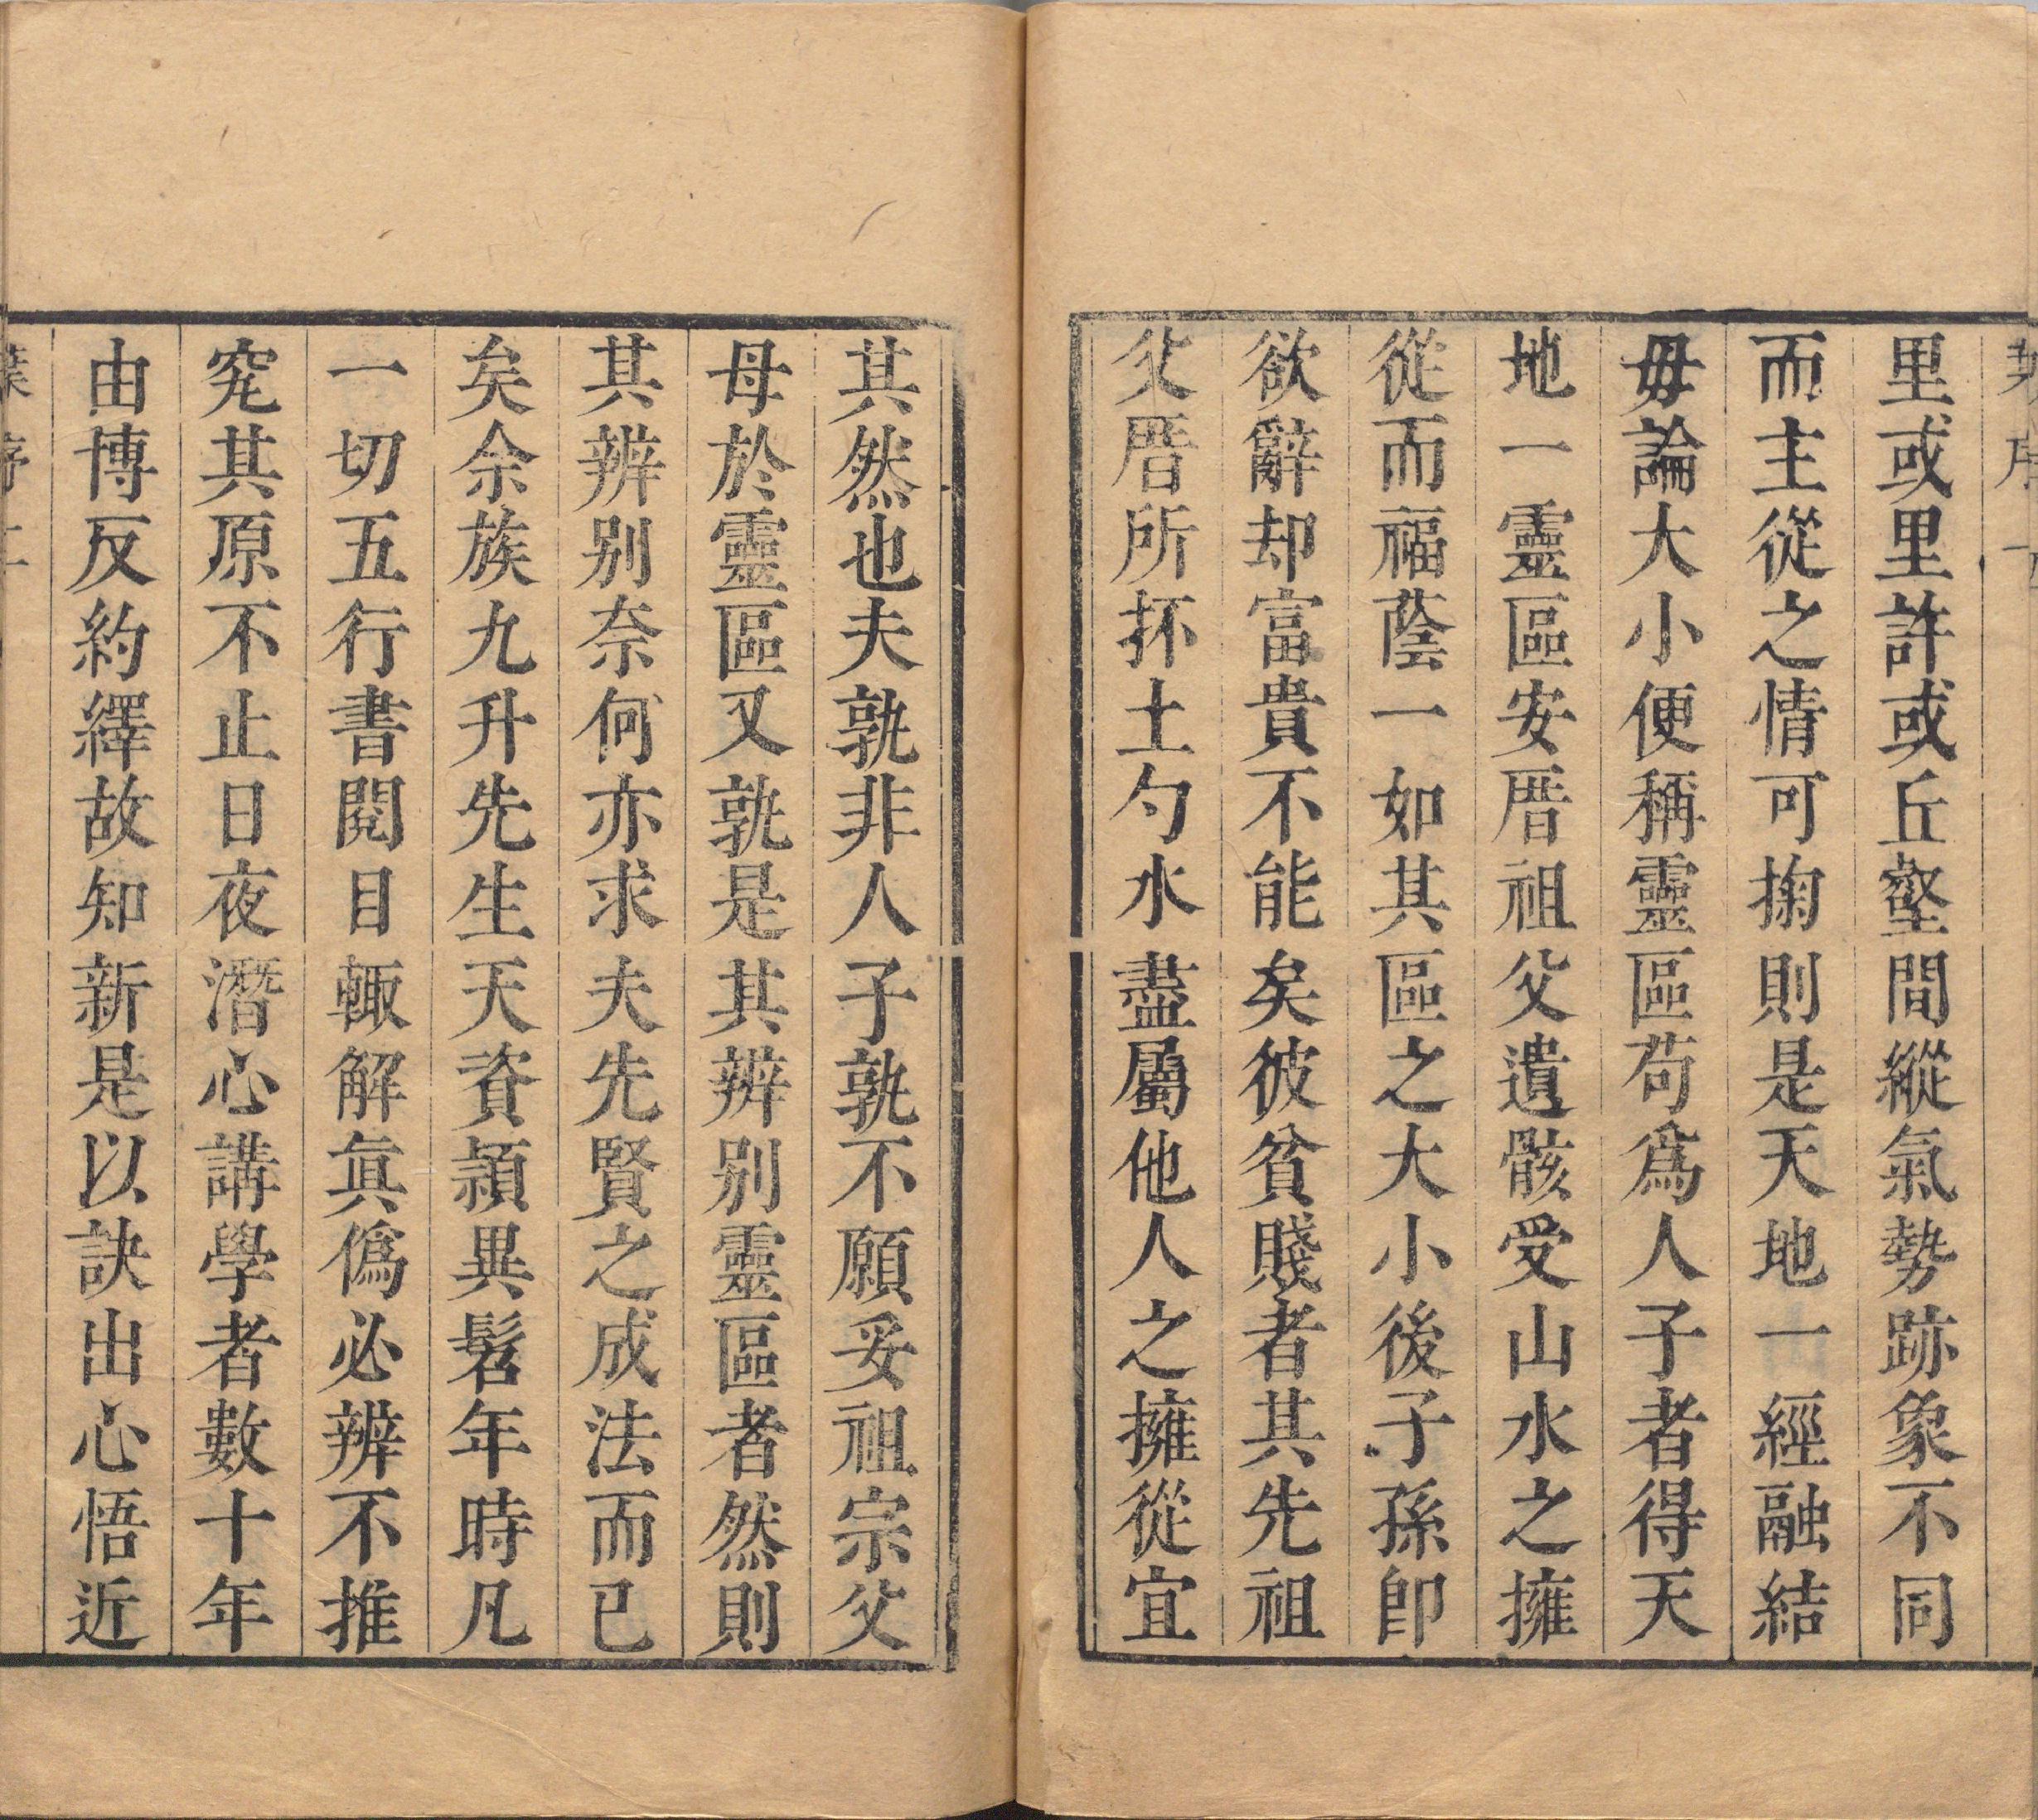 里或里許或丘壑間縱氣勢跡象不同
而主從之情可掬則是天地一經融結
毋論大小便稱靈區苟爲人子者得天
地一靈區安厝祖父遺骸受山水之擁
從而福蔭一如其區之大小後子孫卽
欲辭却富貴不能矣彼貧賤者其先祖
父厝所抔土勺水盡屬他人之擁從宜
其然也夫孰非人子孰不願妥祖宗父
母於靈區又孰是其辨别靈區者然則
其辨别奈何亦求夫先賢之成法而已
矣余族九升先生天資頴異髫年時凡
一切五行書閱目輙解眞僞必辨不推
究其原不止日夜潛心講學者數十年
由博反約繹故知新是以訣出心悟近